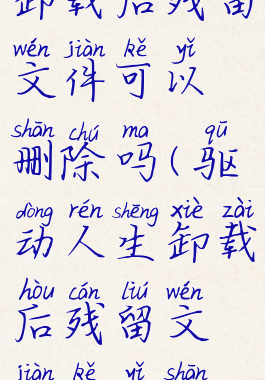 卸载后残留
wén jiàn kě yǐ
文件可以
shān chú ma qū
删除吗(驱
dòng rén shēng xiè zài
动人生卸载
hòu cán liú wén
后残留文
jiàn kě yǐ shān